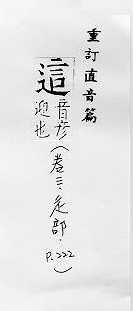 重訂直音篇
這
音彥
迎也
(卷三·辵部·
P.222)